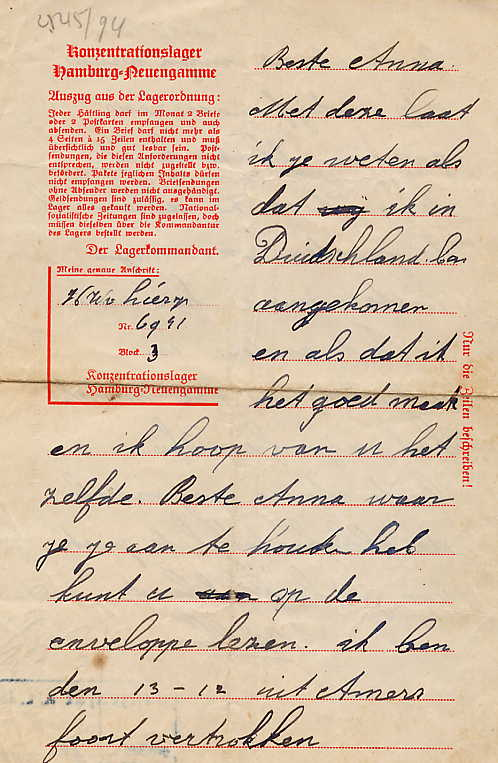 425/94
Konzentrationslager
Hamburg-Neuengamme
Auszug aus der Lagerordnung:
Jeder Häftling darf im Monat 2 Briefe
oder 2 Postkarten empfangen und auch
absenden. Ein Brief darf nicht mehr als
4 Seiten à 15 Zeilen enthalten und muß
übersichtlich und gut lesbar sein. Post-
sendungen, die diesen Anforderungen nicht
entsprechen, werden nicht zugestellt bzw.
befördert. Pakete jeglichen Inhalts dürfen
nicht empfangen werden. Briefsendungen
ohne Absender werden nicht ausgehändigt.
Geldsendungen sind zulässig, es kann im
Lager alles gekauft werden. National-
sozialistische Zeitungen sind zugelassen, doch
müssen dieselben über die Kommandantur
des Lagers bestellt werden.
Der Lagerkommandant.
Meine genaue Anschrift:
Nr. 6911
Block 3
Konzentrationslager
Hamburg-Neuengamme
Nur die Zeilen beschreiben!
Beste Anna.
Met deze laat
ik je weten als
dat ik in
Duidschland ben
aangekomen
en als dat ik
het goed maak
en ik hoop van u het
zelfde. Beste Anna waar
je je aan te houken heb
kunt u op de
enveloppe lezen. ik ben
den 13-12 uit Amers
foort vertrokken